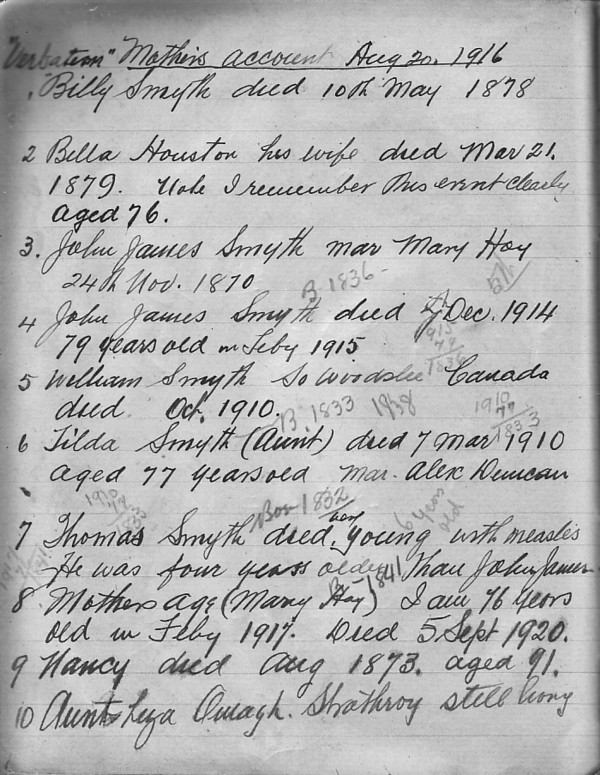 "Verbatim" Mother's account Aug 20. 1916
Billy Smyth died 10th May 1878
2 Bella Houston his wife died Mar 21.
1879. Note I remember this event clearly
aged 76.
3. John James Smyth mar Mary Hoy
24th Nov. 1870
B. 1836-
4 John James Smyth died 7th Dec. 1914
79 years old in Feby 1915
1915
79
1836
5 William Smyth So Woodslee Canada
died Oct. 1910.
B. 1833 1838
1910
77
1833
6 Tilda Smyth (Aunt) died 7 Mar 1910
aged 77 years old Mar. Alex Duncan
Born 1832
6 years old
7 Thomas Smyth died very young with measles
He was four years older than John James
B. 1841
8 Mothers age (Mary Hoy) I am 76 years
old in Feby 1917. Died 5 Sept 1920.
9 Nancy died Aug 1873. aged 91.
10 Aunt Liza Omagh. Strathroy still living